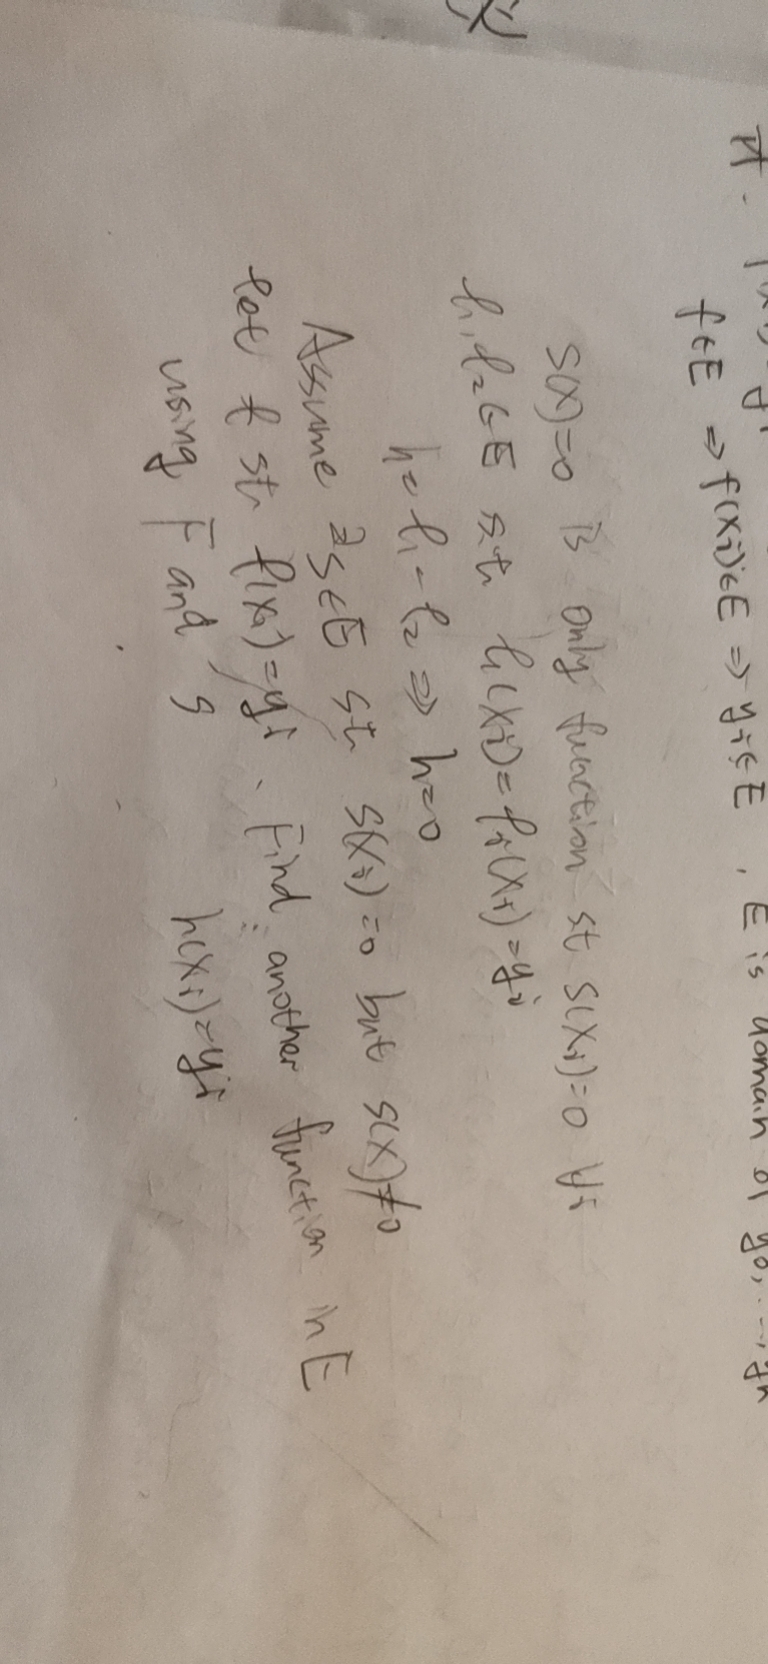 f∈E ⇒ f(xi)∈E ⇒ yi∈E , E is domain of y0,...,yn
S(x)=0 is only function st S(xi)=0 ∀i
l1,l2∈E st l1(xi)=l2(xi)=yi
h=l1-l2 ⇒ h=0
Assume ∃s∈E st S(xi)=0 but S(x)≠0
let f st f(xi)=yi . Find another function in E
using F and S h(xi)=yi